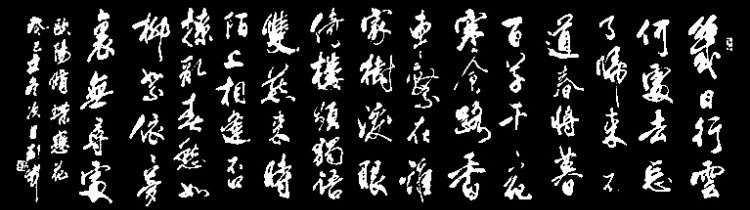 幾日行雲
何處去忘
了歸來不
道春將暮
百草千花
寒食路香
車繫在誰
家樹淚眼
倚樓頻獨語
雙燕來時
陌上相逢否
撩亂春愁如
柳絮依々夢
裏無尋處
歐陽脩蝶戀花
癸巳